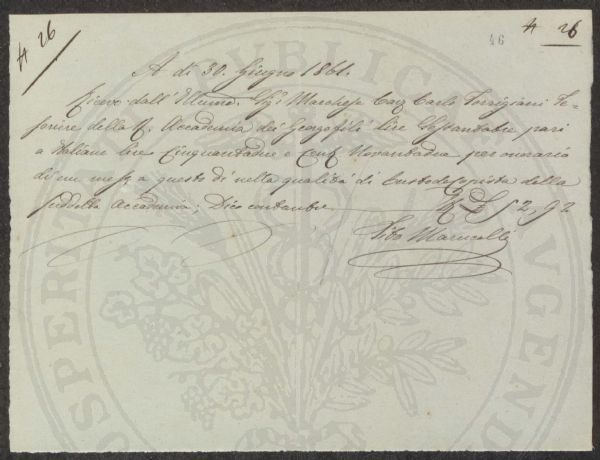 # 26
# 26
46
A di 30. Giugno 1861.
Ricevo dall' Illumo. Sigr Marchese Cav Carlo Torrigiani Te=
soriere della R. Accademia dei Georgofili lire Sessantatre pari
a Italiane lire Cinquantadue e Cent Novantadue per onorario
di un mese a questo dì nella qualità di Custode Copista della
suddetta Accademia; Dico contanti £ 52,92
Tito Marucelli
PUBLICAE
PROSPERITATI
AUGENDAE